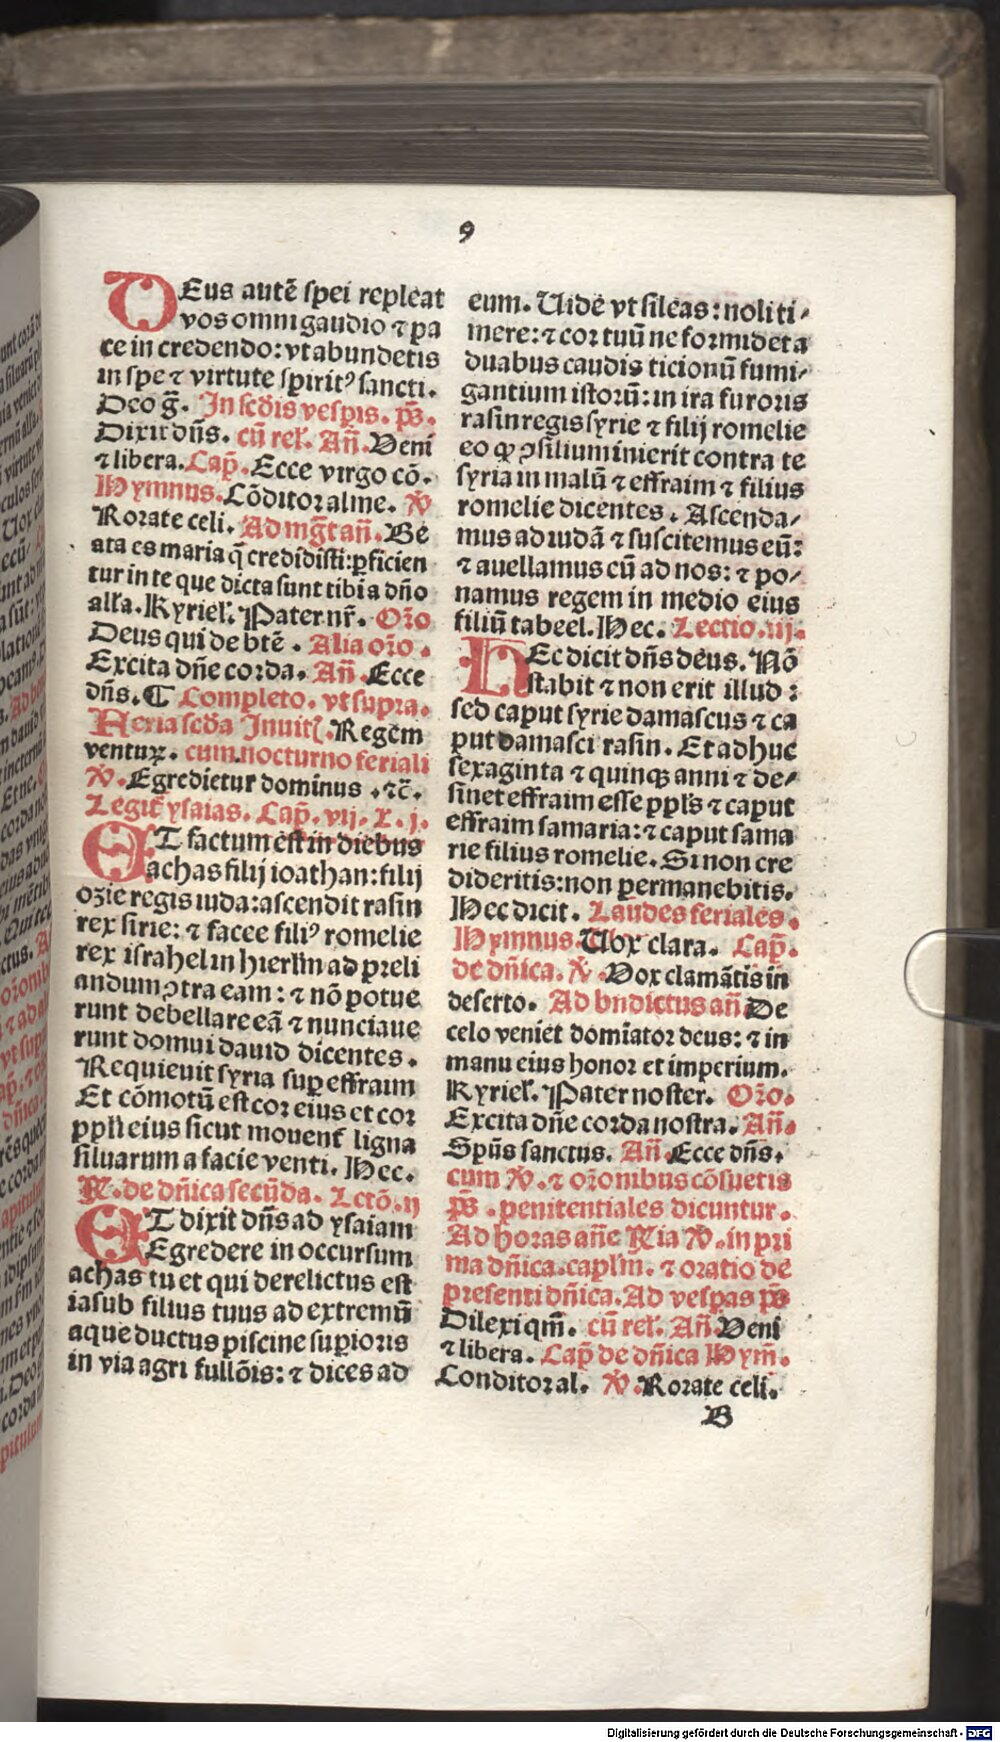 9
DEus autē spei repleat
vos omni gaudio ⁊ pa
ce in credendo: vt abundetis
in spe ⁊ virtute spiritꝰ sancti.
Deo g̃. In scd̄is vespis. ps̄.
Dixit dn̄s. cū rel'. An̄. Veni
⁊ libera. Cap̄. Ecce virgo cō.
Hymnus. Cōditor alme. ℣
Rorate celi. Ad mg̃t an̄. Be
ata es maria q̄ credidisti: ꝑficien
tur in te que dicta sunt tibi a dn̄o
alľa. Kyriel'. Pater nr̄. Or̄o
Deus qui de btē. Alia or̄o.
Excita dn̄e corda. An̄. Ecce
dn̄s. ¶ Completo. vt supra.
Feria scd̄a Inuit͛. Regem
venturꝝ. cum nocturno feriali
℣. Egredietur dominus. ⁊c̄.
Legit͛ ysaias. Cap̄. vij. L. j.
ET factum est in diebus
achas filij ioathan: filij
ozie regis iuda: ascendit rasin
rex sirie: ⁊ facee filiꝰ romelie
rex israhel in hierlm̄ ad preli
andum ꝯtra eam: ⁊ nō potue
runt debellare eā ⁊ nunciaue
runt domui dauid dicentes.
Requieuit syria suꝑ effraim
Et cōmotū est cor eius et cor
ppl'i eius sicut mouent͛ ligna
siluarum a facie venti. Hec.
℟. de dn̄ica secūda. Lctō. ij
ET dixit dn̄s ad ysaiam
Egredere in occursum
achas tu et qui derelictus est
iasub filius tuus ad extremū
aque ductus piscine suꝑioris
in via agri fullōis: ⁊ dices ad
eum. Uide vt sileas: noli ti⸗
mere: ⁊ cor tuū ne formidet a
duabus caudis ticionū fumi⸗
gantium istorū: in ira furoris
rasin regis syrie ⁊ filij romelie
eo ꝙ ꝯsilium inierit contra te
syria in malū ⁊ effraim ⁊ filius
romelie dicentes. Ascenda⸗
mus ad iudā ⁊ suscitemus eū:
⁊ auellamus eū ad nos: ⁊ po⸗
namus regem in medio eius
filiū tabeel. Hec. Lectio. iij.
HEc dicit dn̄s deus. Nō
stabit ⁊ non erit illud:
sed caput syrie damascus ⁊ ca
put damasci rasin. Et adhuc
sexaginta ⁊ quinqꝫ anni ⁊ de⸗
sinet effraim esse ppl's ⁊ caput
effraim samaria: ⁊ caput sama
rie filius romelie. Si non cre
dideritis: non ꝑmanebitis.
Hec dicit. Laudes feriales.
Hymnus. Uox clara. Cap̄.
de dn̄ica. ℣. Vox clamātis in
deserto. Ad bn̄dictus an̄ De
celo veniet domīator deus: ⁊ in
manu eius honor et imperium.
Kyriel'. Pater noster. Or̄o.
Excita dn̄e corda nostra. An̄.
Spūs sanctus. An̄. Ecce dn̄s.
cum ℣. ⁊ or̄onibus cōsuetis
ps̄. penitentiales dicuntur.
Ad horas an̄e ℟ia ℣. in pri
ma dn̄ica. capl'm̄. ⁊ oratio de
presenti dn̄ica. Ad vesꝑas ps̄
Dilexi qm̄. cū rel'. An̄. Veni
⁊ libera. Cap̄ de dn̄ica Hym̄.
Conditor al. ℣. Rorate celi.
B
Digitalisierung gefördert durch die Deutsche Forschungsgemeinschaft - DFG